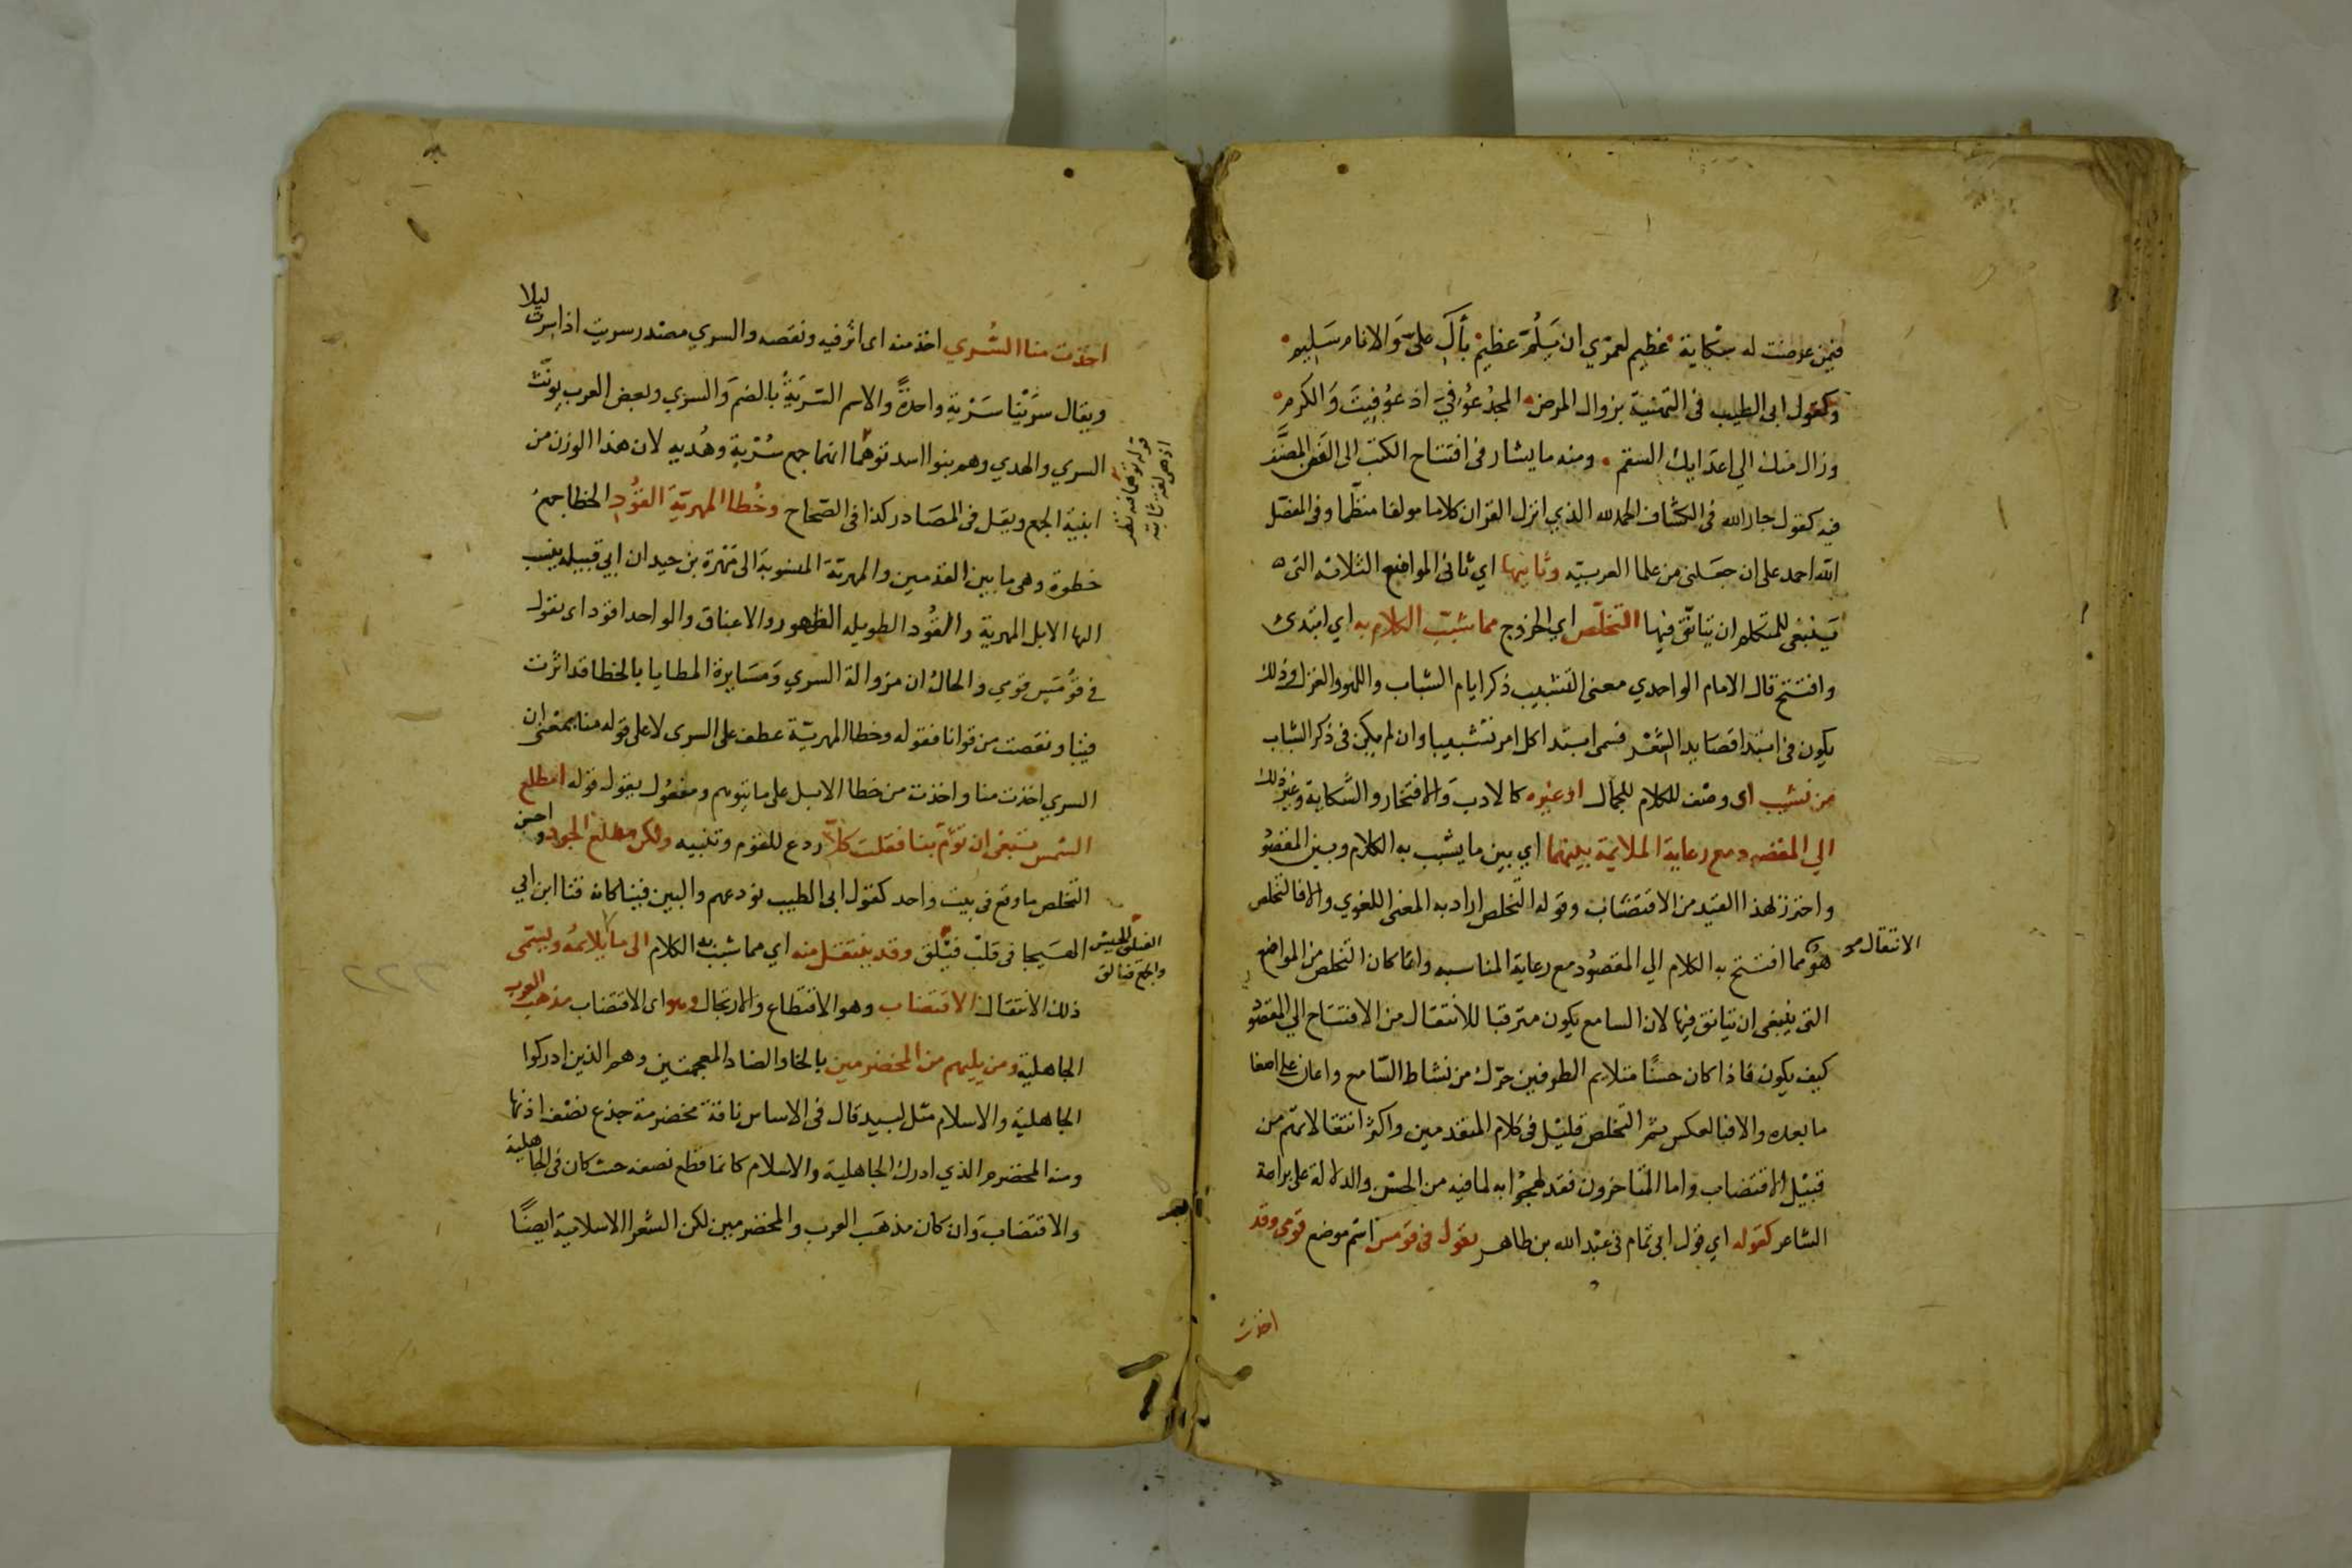 فيمن عرضت له شكاية عظيم لعمري ان يلم عظيم بآل علي والانام سليم
وكقول ابى الطيب فى التهنية بزوال المرض المجد عوفي اذ عوفيت والكرم
وزال منك الي اعدايك السقم ومنه ما يشار فى افتتاح الكتب الى الفن المصنف
فيه كقول جار الله فى الكشاف الحمد لله الذي انزل القران كلاما مولفا منظما وفى المفصل
الله احمد على ان جعلنى من علما العربية وثانيها اي ثانى المواضع الثلاثه التى
ينبغى للمتكلم ان يتانق فيها التخلص اي الخروج مما شبب الكلام به اي ابتدئ
وافتتح قال الامام الواحدي معنى التشبيب ذكر ايام الشباب واللهو والغزل وذلك
يكون فى ابتدا قصايد الشعر فسمى ابتدا كل امر تشبيبا وان لم يكن فى ذكر الشباب
من نسيب اى وصف للكلام للجمال او غيره كالادب والافتخار والشكاية وغير ذلك
الي المقصود مع رعاية الملايمة بينهما اي بين ما يشبب به الكلام وبين المقصود
واحترز بهذا القيد من الاقتضاب وقوله التخلص اراد به المعنى اللغوي والا فالتخلص
هو مما افتتح به الكلام الي المقصود مع رعاية المناسبه وانما كان التخلص من المواضع
الانتقال
التى ينبغى ان يتانق فيها لان السامع يكون مترقبا للانتقال من الافتتاح الي المقصود
كيف يكون فاذا كان حسنا متلايم الطرفين حرك من نشاط السامع واعان على اصغا
ما بعده والا فبالعكس ثم التخلص قليل فى كلام المتقدمين واكثر انتقالاتهم من
قبيل الاقتضاب واما المتاخرون فقد لهجوا به لما فيه من الحسن والدلالة على براعة
الشاعر كقوله اي قول ابى تمام فى عبد الله بن طاهر يقول فى قومس اسم موضع قومى وقد
اخذت
اخذت منا السري اخذ منه اى اثر فيه ونقصه والسري مصدر سريت اذا سرت ليلا
ويقال سرينا سرية واحدة والاسم السرية بالضم والسري وبعض العرب يونث
السري والهدي وهم بنوا اسد توهما انهما جمع سرية وهديه لان هذا الوزن من
ابنية الجمع ويقل فى المصادر كذا فى الصحاح وخطا المهرية القود الخطا جمع
قوله توهما فيه نظر
اذ هى لغة ثابتة
خطوة وهى ما بين القدمين والمهرية المنسوبة الى مهرة بن حيدان ابي قبيله ينسب
الها الابل المهرية والقود الطويله الظهور والاعناق والواحد اقود اى يقول
فى قومس قومي والحال ان مزوالة السري ومسايرة المطايا بالخطا قد اثرت
فينا ونقصت من قوانا فقوله وخطا المهرية عطف على السرى لا على قوله منا بمعنى ان
السري اخذت منا واخذت من خطا الابل على ما يتوهم ومفعول يقول قوله امطلع
الشمس تبتغى ان تؤم بنا فقلت كلا ردع للقوم وتنبيه ولكن مطلع الجود واحسن
التخلص ما وقع فى بيت واحد كقول ابى الطيب نودعهم والبين فينا كانه قنا ابن ابي
الهيجا فى قلب فيلق وقد ينتقل منه اي مما شبب به الكلام الى ما لا يلايمه ويسمى
الفيلق الجيش
والجمع فيالق
ذلك الانتقال الاقتضاب وهو الاقتطاع والارتجال وهو اى الاقتضاب مذهب العرب
الجاهلية ومن يليهم من المخضرمين بالخا والضاد المعجمتين وهم الذين ادركوا
الجاهلية والاسلام مثل لبيد قال فى الاساس ناقة مخضرمة جذع نصف اذنها
ومنه المخضرم الذي ادرك الجاهلية والاسلام كانما قطع نصفه حيث كان فى الجاهلية
والاقتضاب وان كان مذهب العرب والمخضرمين لكن الشعرا الاسلامية ايضا